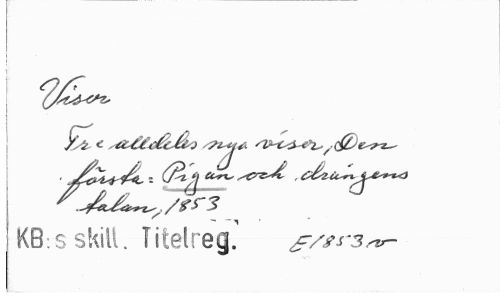 Visor
Tre alldeles nya visor, Den
första: Pigan och drängens
talan, 1853
KB:s skill. Titelreg. E1853v